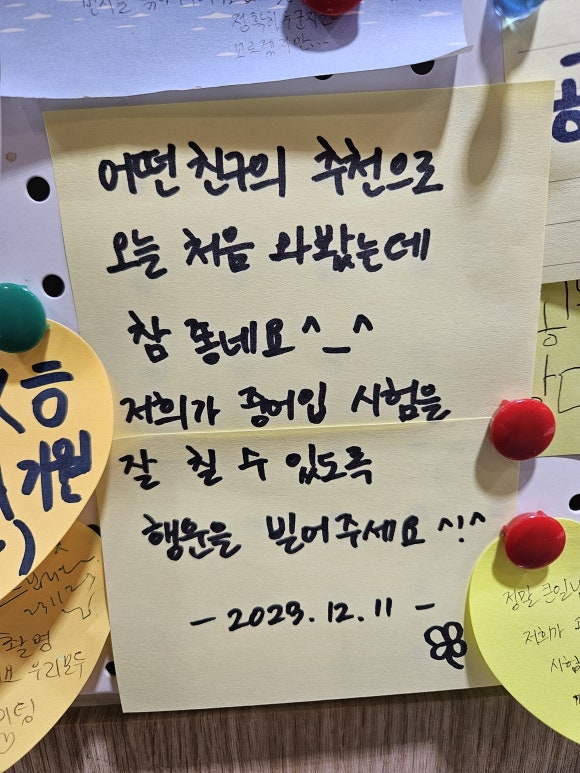 정확히 누군지는
모르겠지만...
어떤 친구의 추천으로
오늘 처음 와봤는데
참 좋네요^_^
저희가 중어입 시험을
잘 칠 수 있도록
행운을 빌어주세요^!^
- 2023.12.11 -
촬영
우리모두
이팅
정말 큰일
저희가
시험